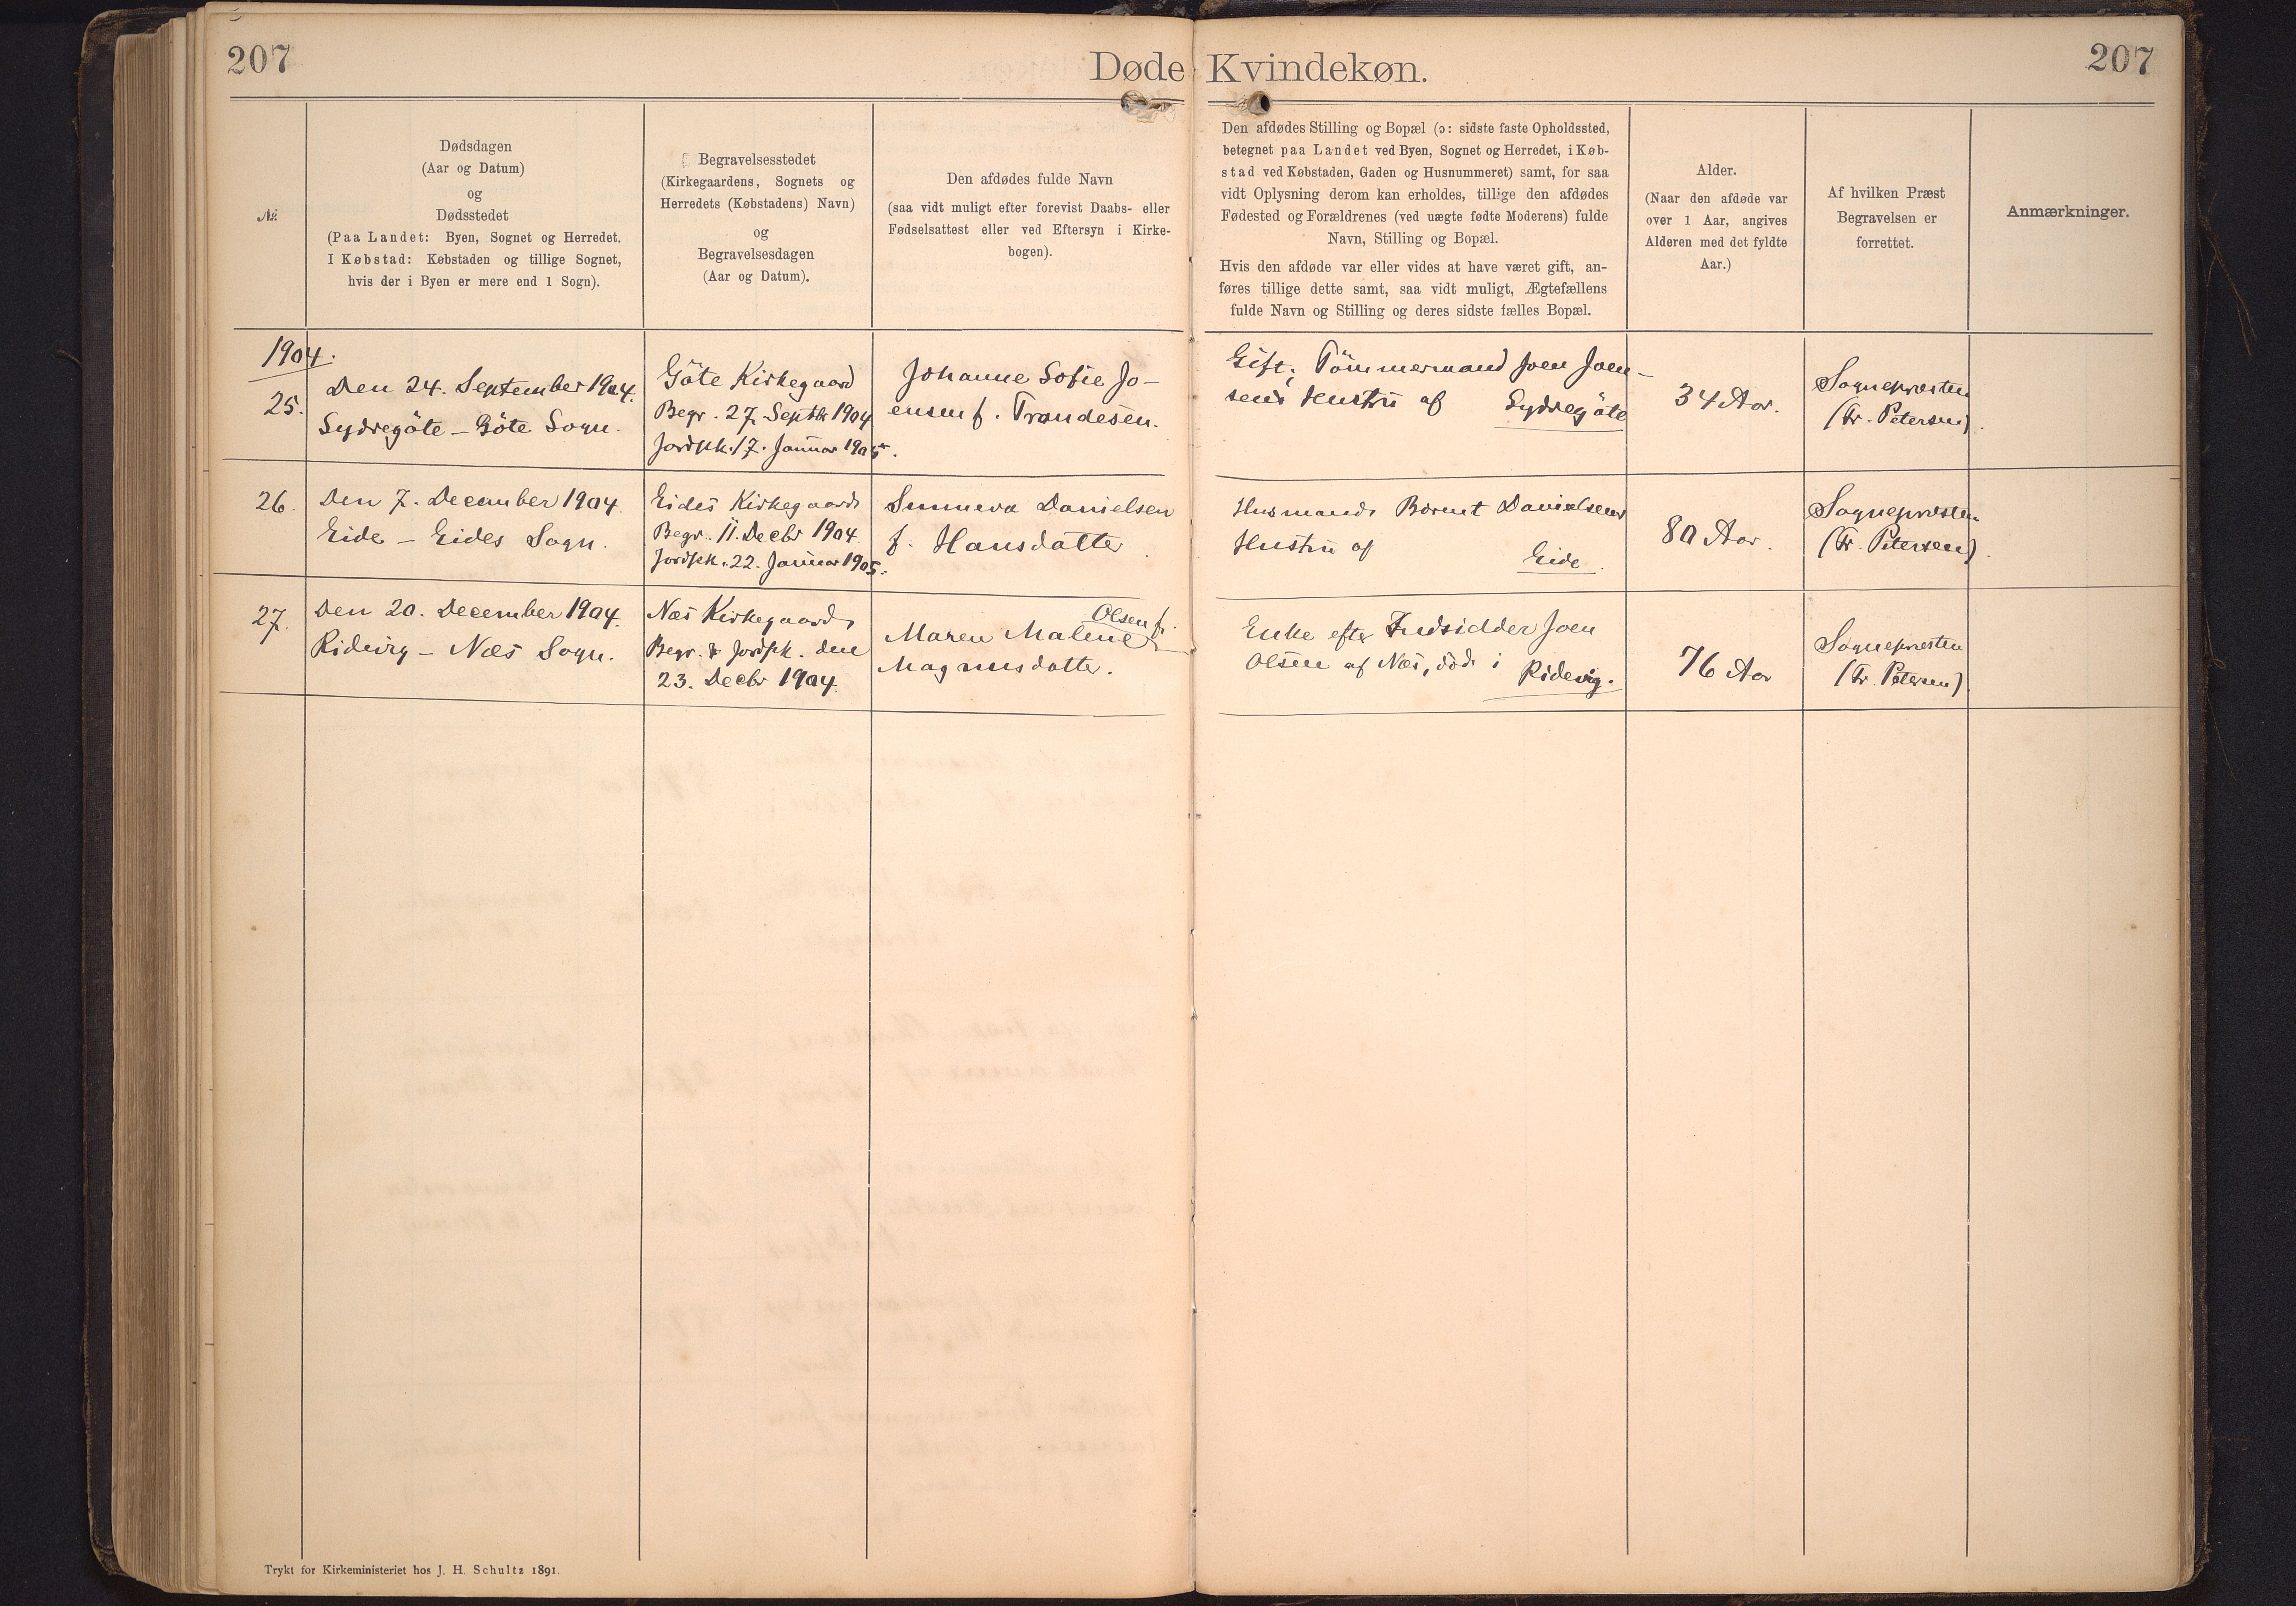 207
Døde Kvindekøn.
207
№
Dødsdagen
(Aar og Datum)
og
Dødsstedet
(Paa Landet: Byen, Sognet og Herredet.
I Købstad: Købstaden og tillige Sognet,
hvis der i Byen er mere end 1 Sogn).
Begravelsesstedet
(Kirkegaardens, Sognets og
Herredets (Købstadens) Navn)
og
Begravelsesdagen
(Aar og Datum).
Den afdødes fulde Navn
(saa vidt muligt efter forevist Daabs- eller
Fødselsattest eller ved Eftersyn i Kirke-
bogen).
Den afdødes Stilling og Bopæl (ɔ: sidste faste Opholdssted,
betegnet paa Landet ved Byen, Sognet og Herredet, i Køb-
stad ved Købstaden, Gaden og Husnummeret) samt, for saa
vidt Oplysning derom kan erholdes, tillige den afdødes
Fødested og Forældrenes (ved uægte fødte Moderens) fulde
Navn, Stilling og Bopæl.
Hvis den afdøde var eller vides at have været gift, an-
føres tillige dette samt, saa vidt muligt, Ægtefællens
fulde Navn og Stilling og deres sidste fælles Bopæl.
Alder.
(Naar den afdøde var
over 1 Aar, angives
Alderen med det fyldte
Aar.)
Af hvilken Præst
Begravelsen er
forrettet.
Anmærkninger.
1904.
25.
Den 24. September 1904.
Sydregöte – Göte Sogn.
Göte Kirkegaard
Begr. 27. Septbr 1904
Jordpk. 17. Januar 1905.
Johanne Sofie Jo-
ensen f. Trondesen.
Gift; Tömmermand Joen Joen-
sens Hustru af Sydregöte
34 Aar.
Sognepræsten
(Fr. Petersen).
26.
Den 7. December 1904.
Eide – Eides Sogn.
Eides Kirkegaard
Begr. 11. Decbr 1904.
Jordpk. 22. Januar 1905.
Sunneva Danielsen
f. Hansdatter
Husmand Berent Danielsens
Hustru af Eide.
80 Aar.
Sognepræsten
(Fr. Petersen).
27.
Den 20. December 1904.
Ridevig – Næs Sogn.
Næs Kirkegaard
Begr. & Jordpk. den
23. Decbr 1904.
Olsen f.
Maren Malene
Magnusdatter.
Enke efter Indsidder Joen
Olsen af Næs, död i Ridevig.
76 Aar
Sognepræsten
(Fr. Petersen).
Trykt for Kirkeministeriet hos J. H. Schultz 1891.